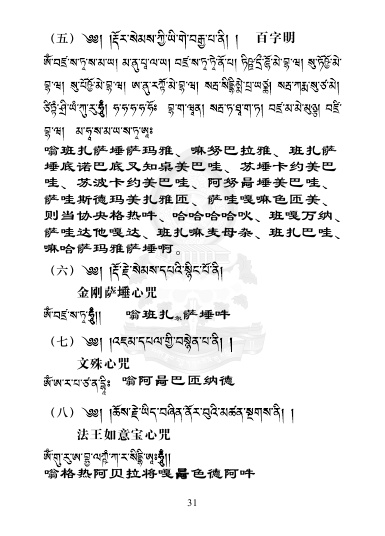 （五）༄༅། །རྡོར་སེམས་ཀྱི་ཡི་གེ་བརྒྱ་པ་ནི། །　百字明
ༀ་བཛྲ་ས་ཏྭ་ས་མ་ཡ། མ་ནུ་པཱ་ལ་ཡ། བཛྲ་ས་ཏྭ་ཏེ་ནོ་པ། ཏིཥྛ་དྲྀ་ཌྷོ་མེ་བྷ་ཝ། སུ་ཏོ་ཥྱོ་མེ་
བྷ་ཝ། སུ་པོ་ཥྱོ་མེ་བྷ་ཝ། ཨ་ནུ་རཀྟོ་མེ་བྷ་ཝ། སརྦ་སིདྡྷི་མྨེ་པྲ་ཡཙྪ། སརྦ་ཀརྨ་སུ་ཙ་མེ།
ཙིཏྟཾ་ཤྲཱི་ཡཾ་ཀུ་རུ་ཧཱུྃ། ཧ་ཧ་ཧ་ཧ་ཧོཿ བྷ་ག་ཝཱན། སརྦ་ཏ་ཐཱ་ག་ཏ། བཛྲ་མ་མེ་མུཉྩ། བཛྲཱི་
བྷ་ཝ། མ་ཧཱ་ས་མ་ཡ་ས་ཏྭ་ཨཱཿ
嗡班扎萨埵萨玛雅、嘛努巴拉雅、班扎萨
埵底诺巴底叉知桌美巴哇、苏埵卡约美巴
哇、苏波卡约美巴哇、阿努曷埵美巴哇、
萨哇斯德玛美扎雅匝、萨哇嘎嘛色匝美、
则当协央格热吽、哈哈哈哈伙、班嘎万纳、
萨哇达他嘎达、班扎嘛麦母杂、班扎巴哇、
嘛哈萨玛雅萨埵啊。
（六）༄༅། །རྡོ་རྗེ་སེམས་དཔའི་སྙིང་པོ་ནི།
金刚萨埵心咒
ༀ་བཛྲ་ས་ཏྭ་ཧཱུྃ།།　嗡班扎尔萨埵吽
（七）༄༅། །འཇམ་དཔལ་གྱི་བསྙེན་པ་ནི། །
文殊心咒
ༀ་ཨ་ར་པ་ཙ་ན་དྷཱིཿ　嗡阿曷巴匝纳德
（八）༄༅། །ཆོས་རྗེ་ཡིད་བཞིན་ནོར་བུའི་མཚན་སྔགས་ནི། །
法王如意宝心咒
ༀ་གུ་རུ་ཨ་བྷྱ་ལཀྵཱ་ཀ་ར་སིདྡྷི་ཨཱཿཧཱུྃ།།
嗡格热阿贝拉将嘎曷色德阿吽
31